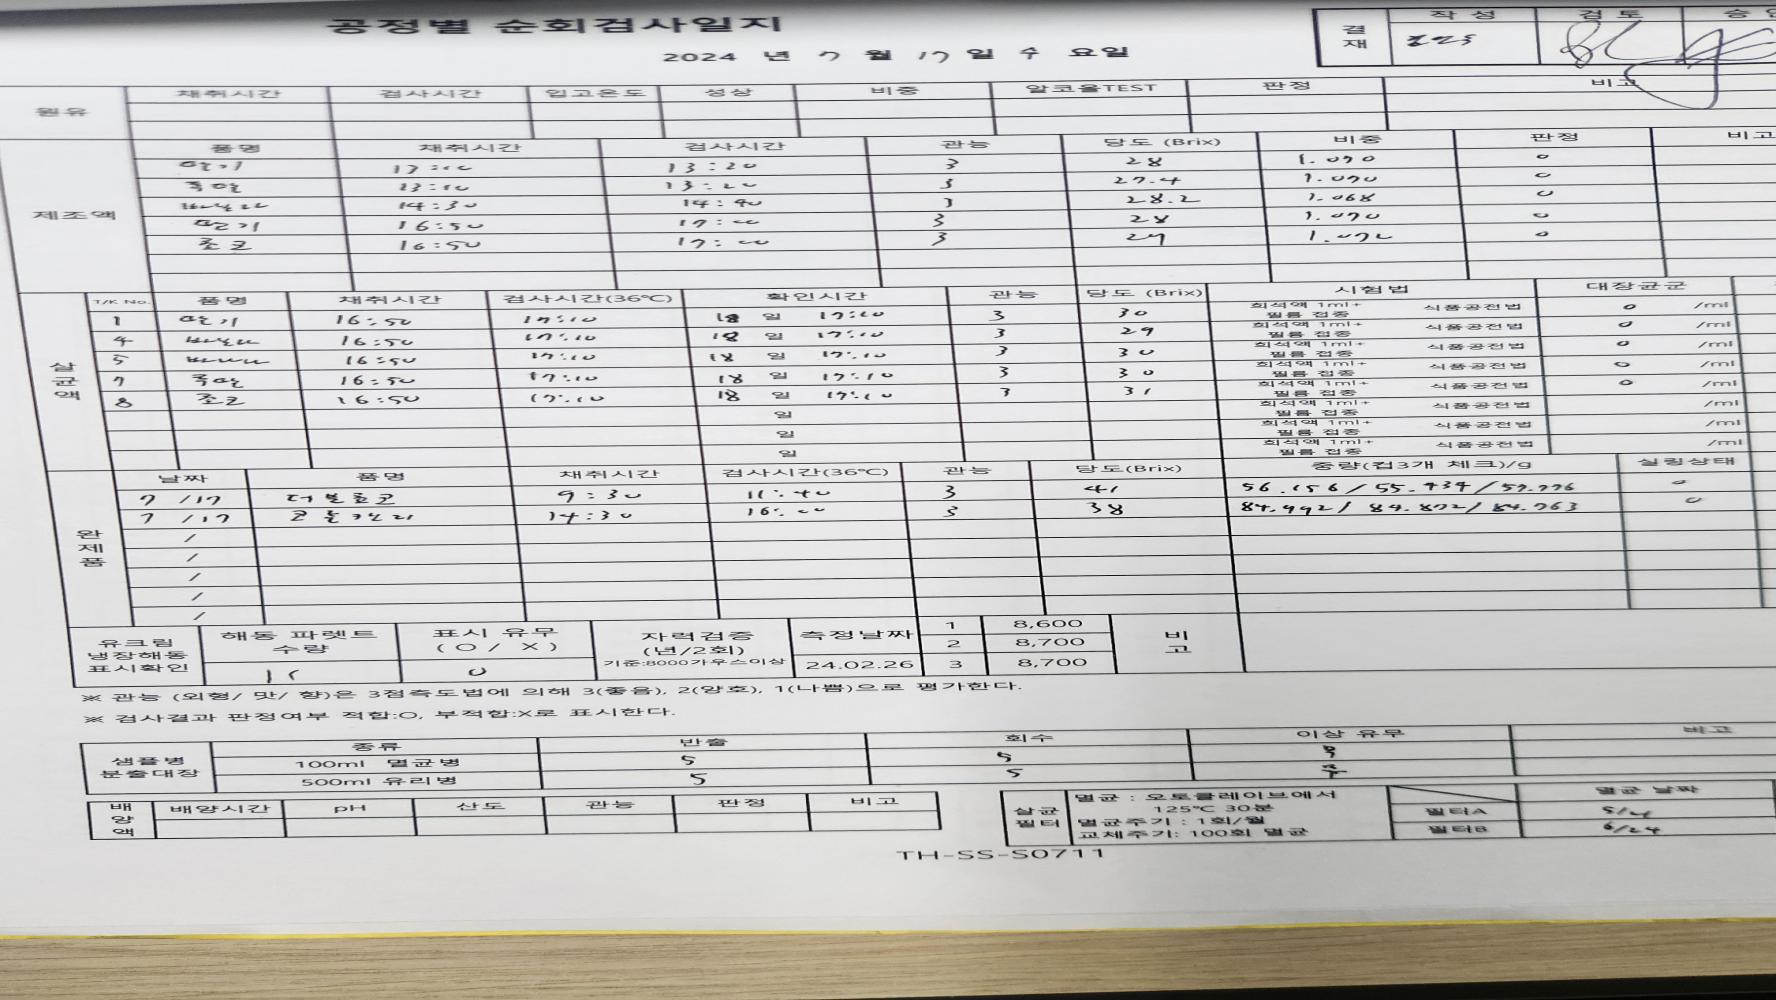 공정별 순회검사일지
2024 년 7 월 17 일 수 요일
결재 작성 검토 승인
원유 채취시간 검사시간 입고온도 성상 비중 알코올TEST 판정 비고
제조액 품명 채취시간 검사시간 관능 당도 (Brix) 비중 판정 비고
딸기 13:10 13:20 3 28 1.070 0
13:10 13:20 3 27.4 1.070 0
바닐라 14:30 14:40 3 28.2 1.068 0
딸기 16:50 17:00 3 28 1.070 0
초코 16:50 17:00 3 29 1.072 0
살균액 T/K No. 품명 채취시간 검사시간(36℃) 확인시간 관능 당도 (Brix) 시험법 대장균군
1 딸기 16:50 17:10 18 일 17:10 3 30 희석액 1ml+ 필름 접종 식품공전법 0 /ml
4 바닐라 16:50 17:10 18 일 17:10 3 29 희석액 1ml+ 필름 접종 식품공전법 0 /ml
5 16:50 17:10 18 일 17:10 3 30 희석액 1ml+ 필름 접종 식품공전법 0 /ml
7 16:50 17:10 18 일 17:10 3 30 희석액 1ml+ 필름 접종 식품공전법 0 /ml
8 초코 16:50 17:10 18 일 17:10 3 31 희석액 1ml+ 필름 접종 식품공전법 0 /ml
일 희석액 1ml+ 필름 접종 식품공전법 /ml
일 희석액 1ml+ 필름 접종 식품공전법 /ml
일 희석액 1ml+ 필름 접종 식품공전법 /ml
완제품 날짜 품명 채취시간 검사시간(36℃) 관능 당도(Brix) 중량(컵3개 체크)/g 실링상태
7 /17 더블초코 9:30 11:40 3 41 56.156/55.934/ 0
7 /17 14:30 16:00 3 38 84.992/ 84.872/ 84.763 0
/
/
/
/
/
유크림 냉장해동 표시확인 해동 파렛트 수량 표시 유무 (O / X) 자력검증 (년/2회) 기준:8000가우스이상 측정날짜 1 8,600 비고
2 8,700
0 24.02.26 3 8,700
※ 관능 (외형/ 맛/ 향)은 3점측도법에 의해 3(좋음), 2(양호), 1(나쁨)으로 평가한다.
※ 검사결과 판정여부 적합:O, 부적합:X로 표시한다.
샘플병 분출대장 종류 반출 회수 이상 유무 비고
100ml 멸균병 5 5 무
500ml 유리병 5 5 무
배양액 배양시간 pH 산도 관능 판정 비고
살균필터 멸균 : 오토클레이브에서 125℃ 30분 멸균 날짜
멸균주기 : 1회/월 필터A
교체주기: 100회 멸균 필터B 6/24
TH-SS-S0711